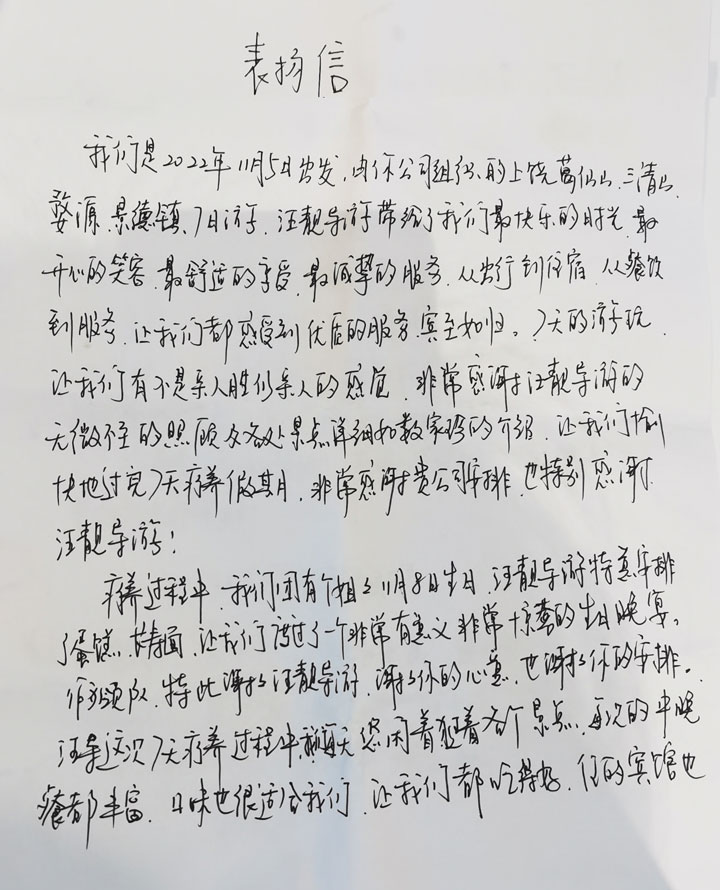 表扬信
我们是2022年11月5日出发,由你公司组织的上饶葛仙山、三清山、
婺源、景德镇、7日游,汪靓导游带给了我们最快乐的时光,最
开心的笑容,最舒适的享受,最诚挚的服务,从出行到住宿,从餐饮
到服务,让我们都感受到优质的服务,宾至如归。7天的游玩,
让我们有不是亲人胜似亲人的感觉,非常感谢汪靓导游的
无微不至的照顾及各处景点详细如数家珍的介绍,让我们愉
快地过完7天疗养假期,非常感谢贵公司安排,也特别感谢
汪靓导游!
疗养过程中,我们团有个姐么11月8日生日,汪靓导游特意安排
了蛋糕、长寿面,让我们度过了一个非常有意义非常惊喜的生日晚宴。
作为领队,特此谢么汪靓导游,谢么你的心意,也谢么你的安排。
汪导这次7天疗养过程中,每天悠闲着逛着各个景点,每次的中晚
餐都丰富,口味也很适合我们,让我们都吃得好,住的宾馆也